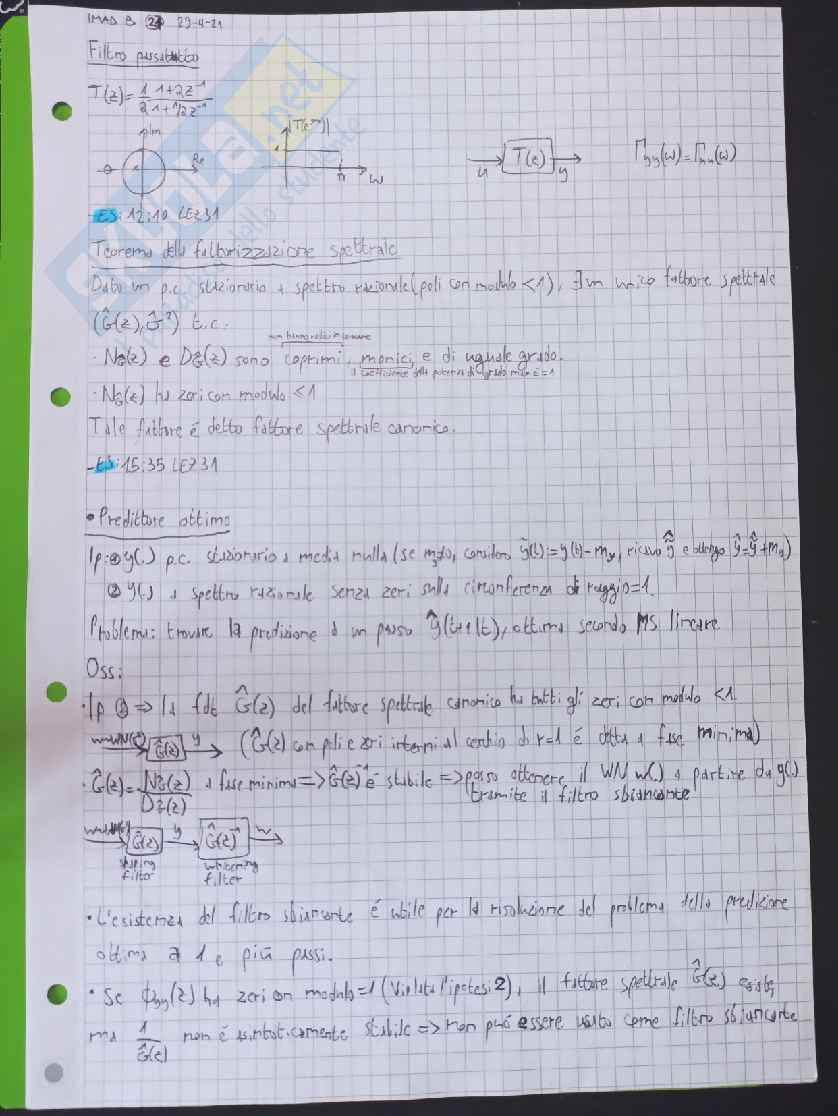 IMAD B 24 29-4-21
Filtro passatutto
T(z)=1/2 (1+2z⁻¹)/(1+1/2z⁻¹)
Im
Re
|T(e^jω)|
1
π
ω
u
T(z)
y
Γyy(ω)=Γuu(ω)
-ES: 12:10 LEZ31
Teorema della fattorizzazione spettrale
Dato un p.c. stazionario a spettro razionale (poli con modulo <1), ∃ un unico fattore spettrale
(Ĝ(z), σ̂²) t.c.
non hanno radici in comune
· NĜ(z) e DĜ(z) sono coprimi, monici, e di uguale grado.
il coefficiente della potenza di grado max è =1
· NĜ(z) ha zeri con modulo <1
Tale fattore é detto fattore spettrale canonico.
-ES: 15:35 LEZ31
• Predittore ottimo
Ip: ① y(.) p.c. stazionario a media nulla (se m≠0, considero ỹ(t):=y(t)-my, ricavo ỹ̂ e ottengo ŷ=ỹ̂+my)
② y(.) a spettro razionale senza zeri sulla circonferenza di raggio=1.
Problema: trovare la predizione a un passo ŷ(t+1|t), ottima secondo MS lineare
Oss:
· Ip ② => la fdt Ĝ(z) del fattore spettrale canonico ha tutti gli zeri con modulo <1.
Ĝ(z) y (Ĝ(z) con poli e zeri interni al cerchio di r=1 é detta a fase minima)
· Ĝ(z)=NĜ(z)/DĜ(z) a fase minima => Ĝ(z)⁻¹ é stabile => posso ottenere il WN w(.) a partire da y(.)
tramite il filtro sbiancante
Ĝ(z) y Ĝ(z)⁻¹ w
shaping whitening
filter filter
• L'esistenza del filtro sbiancante é utile per la risoluzione del problema della predizione
ottima a 1 e più passi.
• Se ϕyy(z) ha zeri con modulo=1 (Violata l'ipotesi 2), il fattore spettrale Ĝ(z) esiste,
ma 1/Ĝ(z) non é asintoticamente stabile => non può essere usato come filtro sbiancante